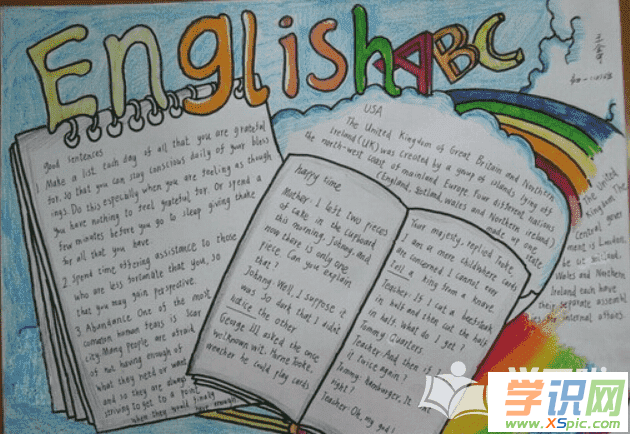 English ABC
good sentences
1 Make a list each day of all that you are grateful
for. so that you can stay conscious daily of your bless
ings. Do this especially when you are feeling as though
you have nothing to feel grateful for. Or spend a
few minutes before you go to sleep giving thanks
for all that you have
2 Spend time offering assistance to those
who are less fortunate than you, so
that you may gain perspective.
3 Abundance One of the most
common human fears is scar
city. Many people are afraid
of not having enough of
what they need or want
and so they are always
striving to get to a point
when they would finally
have enough
USA
The United Kingdom of Great Britain and Northern
Ireland (UK) was created by a group of islands lying off
the north-west coast of mainland Europe. Four different nations
(England, Scotland, wales and Northern ireland)
made up one
state
happy time
Mother: I left two pieces
of cake in the cupboard
this morning, Johnny, And
now there is only one
piece. Can you explain
that?
Johnny: Well, I suppose it
was so dark that I didn't
notice the other
George III, asked the once
wellknown wit. Horne Tooke,
wheather he could play cards
Your majesty, replied Tooke,
I am a mere child where cards
are concerned I cannot even
tell a king from a knave
Teacher: If I cut a beefsteak
in half and then cut the half
in half. What do I get?
Tommy: Quarters.
Teacher: And then if I
it twice again?
Tommy: hamburger. Is that
right?
Teacher: Oh, my god!
The United
Kingdom The
Central gover
ment is London,
Wales and Northern
Ireland each have
their separate assembl
internal affairs.
学识网
www.XSpic.com